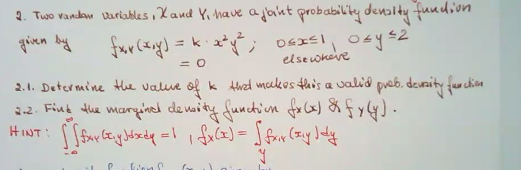 2. Two random variables, X and Y, have a joint probability density function
given by fX,Y (x,y) = k · x²y² ; 0≤x≤1, 0≤y≤2
= 0 elsewhere
2.1. Determine the value of k that makes this a valid prob. density function
2.2. Find the marginal density function fx(x) & fY(y).
HINT: ∫∫fX,Y(x,y)dxdy = 1, fX(x) = ∫fX,Y(x,y)dy